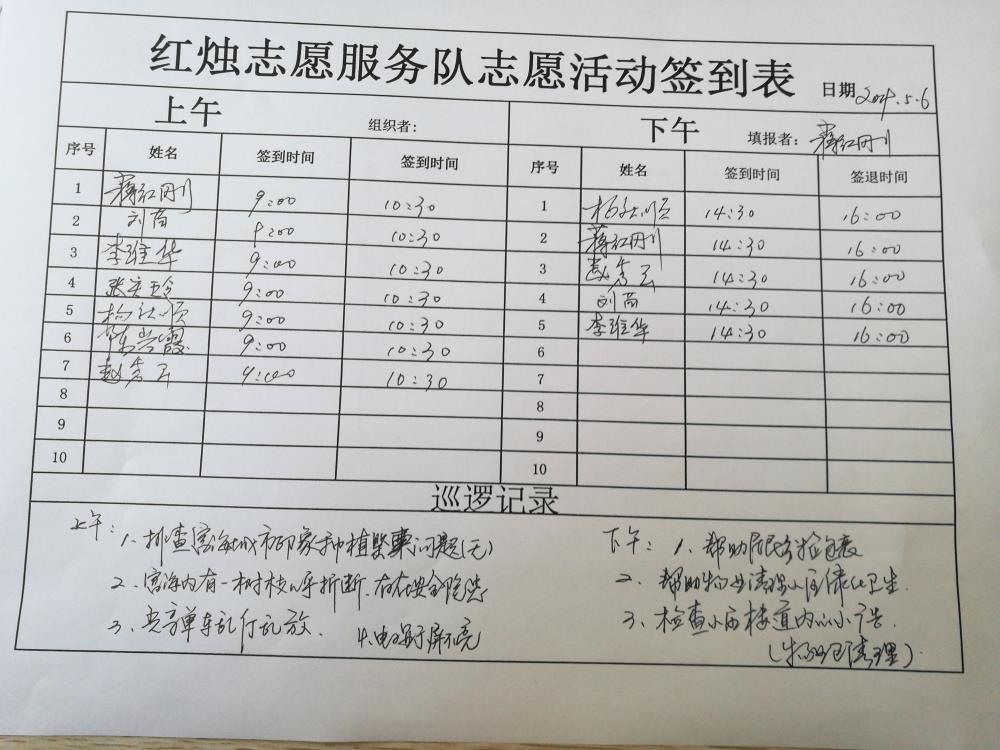 红烛志愿服务队志愿活动签到表 日期2024.5.6
上午 组织者:
下午 填报者: 蒋红刚
序号 姓名 签到时间 签到时间 序号 姓名 签到时间 签退时间
1 蒋红刚 9:00 10:30 1 14:30 16:00
2 刘菊 9:00 10:30 2 蒋红刚 14:30 16:00
3 李维华 9:00 10:30 3 赵秀云 14:30 16:00
4 9:00 10:30 4 刘菊 14:30 16:00
5 9:00 10:30 5 李维华 14:30 16:00
6 9:00 10:30 6
7 赵秀云 9:00 10:30 7
8 8
9 9
10 10
巡逻记录
上午: 1、排查滨海城市印象种植罂粟问题(无)
2、滨海内有一树枝折断.存在安全隐患
3、共享单车乱行乱放. 4、电子屏不亮
下午: 1、帮助居民
2、帮助物业清理小区绿化卫生
3、检查小区楼道内小广告.
(物业已清理)